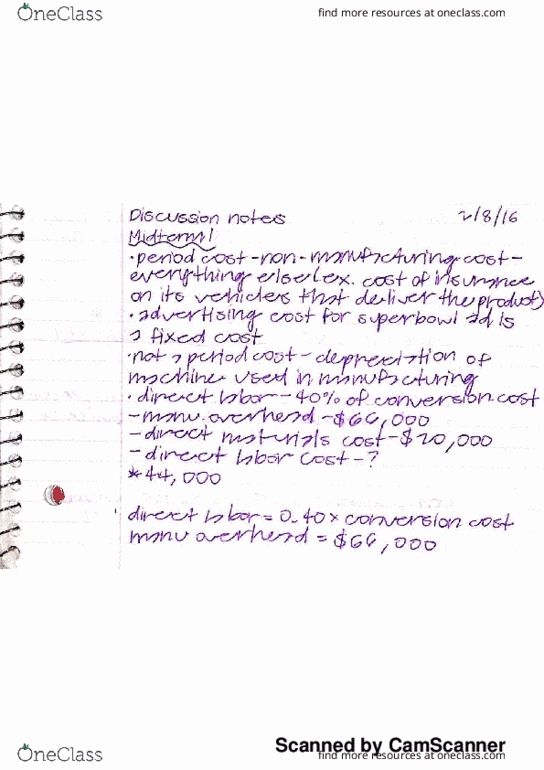 OneClass
find more resources at oneclass.com
Discussion notes 2/8/16
Midterm 1
•period cost-non-manufacturing cost-
everything else (ex. cost of insurance
on its vehicles that deliver the product)
•advertising cost for superbowl ad is
a fixed cost
•not a period cost-depreciation of
machine used in manufacturing
•direct labor-40% of conversion cost
-manu. overhead-$66,000
-direct materials cost-$20,000
-direct labor cost-?
*44,000
direct labor=0.40×conversion cost
manu overhead=$66,000
Scanned by CamScanner
OneClass
find more resources at oneclass.com